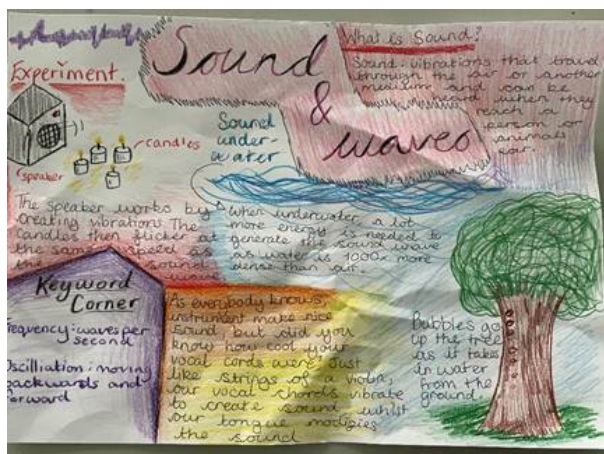 Sound
&
waves
What is Sound?
Sound: vibrations that travel
through the air or another
medium and can be
heard when they
reach a
person or
animals
ear.
Experiment.
candles
speaker
The speaker works by
creating vibrations. The
candles then flicker at
the same speed as
the sound
Sound
under-
water
When underwater, a lot
more energy is needed to
generate the sound wave
as water is 1000x more
dense than air.
Keyword
Corner
Frequency: waves per
second
Oscilliation: moving
backwards and
forward
As everybody knows,
instrument make nice
sound but did you
know how cool your
vocal cords were, Just
like strings of a violin,
our vocal chords vibrate
to create sound whilst
our tongue modifies
the sound
Bubbles go
up the tree
as it takes
in water
from the
ground.